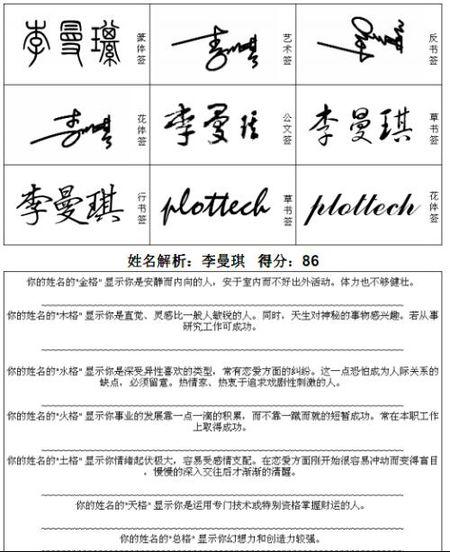 李曼琪
篆体签
李曼琪
艺术签
反书签
李曼琪
花体签
李曼琪
公文签
李曼琪
草书签
李曼琪
行书签
plottech
草书签
plottech
花体签
姓名解析：李曼琪 得分：86
你的姓名的"金格" 显示你是安静而内向的人，安于室内而不好出外活动。体力也不够健壮。
你的姓名的"木格" 显示你是直觉、灵感比一般人敏锐的人。同时，天生对神秘的事物感兴趣。若从事
研究工作可成功。
你的姓名的"水格" 显示你是深受异性喜欢的类型，常有恋爱方面的纠纷。这一点恐怕成为人际关系的
缺点，必须留意。热情家、热衷于追求戏剧性刺激的人。
你的姓名的"火格" 显示你事业的发展靠一点一滴的积累，而不靠一蹴而就的短暂成功。常在本职工作
上取得成功。
你的姓名的"土格" 显示你情绪起伏极大，容易受感情支配。在恋爱方面刚开始很容易冲动而变得盲目
，慢慢的深入交往后才渐渐的清醒。
你的姓名的"天格" 显示你是运用专门技术或特别资格掌握财运的人。
你的姓名的"总格" 显示你幻想力和创造力较强。